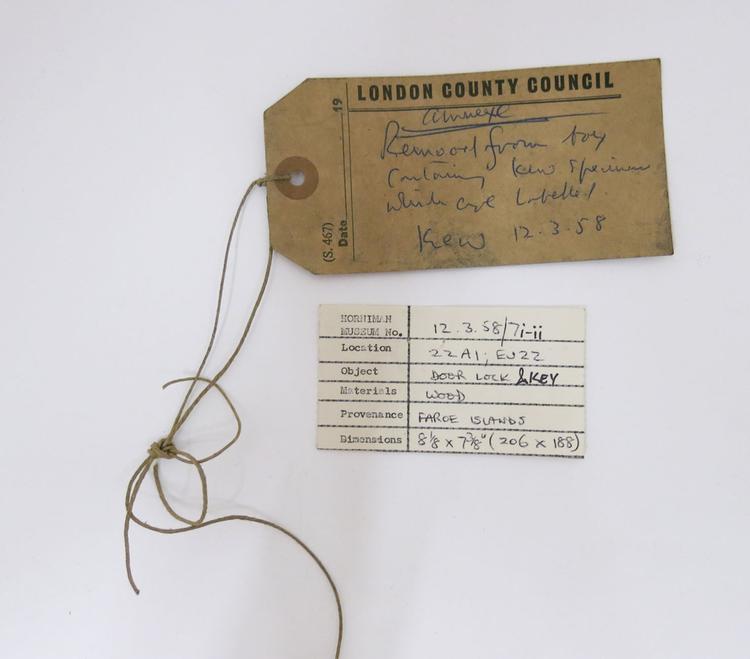 LONDON COUNTY COUNCIL
19
Date
(S. 467)
annexe
Removed from box
containing Kew specimens
which are labelled.
Kew 12.3.58
HORNIMAN
MUSEUM No. 12.3.58/7i-ii
Location 22A1; EU22
Object DOOR LOCK & KEY
Materials WOOD
Provenance FAROE ISLANDS
Dimensions 8⅛ x 7⅜" (206 x 188)